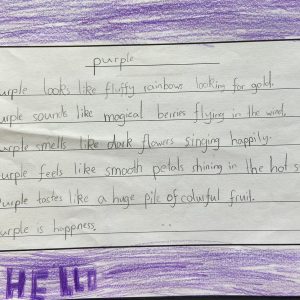 purple
urple looks like fluffy rainbows looking for gold.
urple sounds like magical berries flying in the wind.
urple smells like dark flowers singing happily.
urple feels like smooth petals shining in the hot s
Purple tastes like a huge pile of colourful fruit.
urple is happness.
HELLO